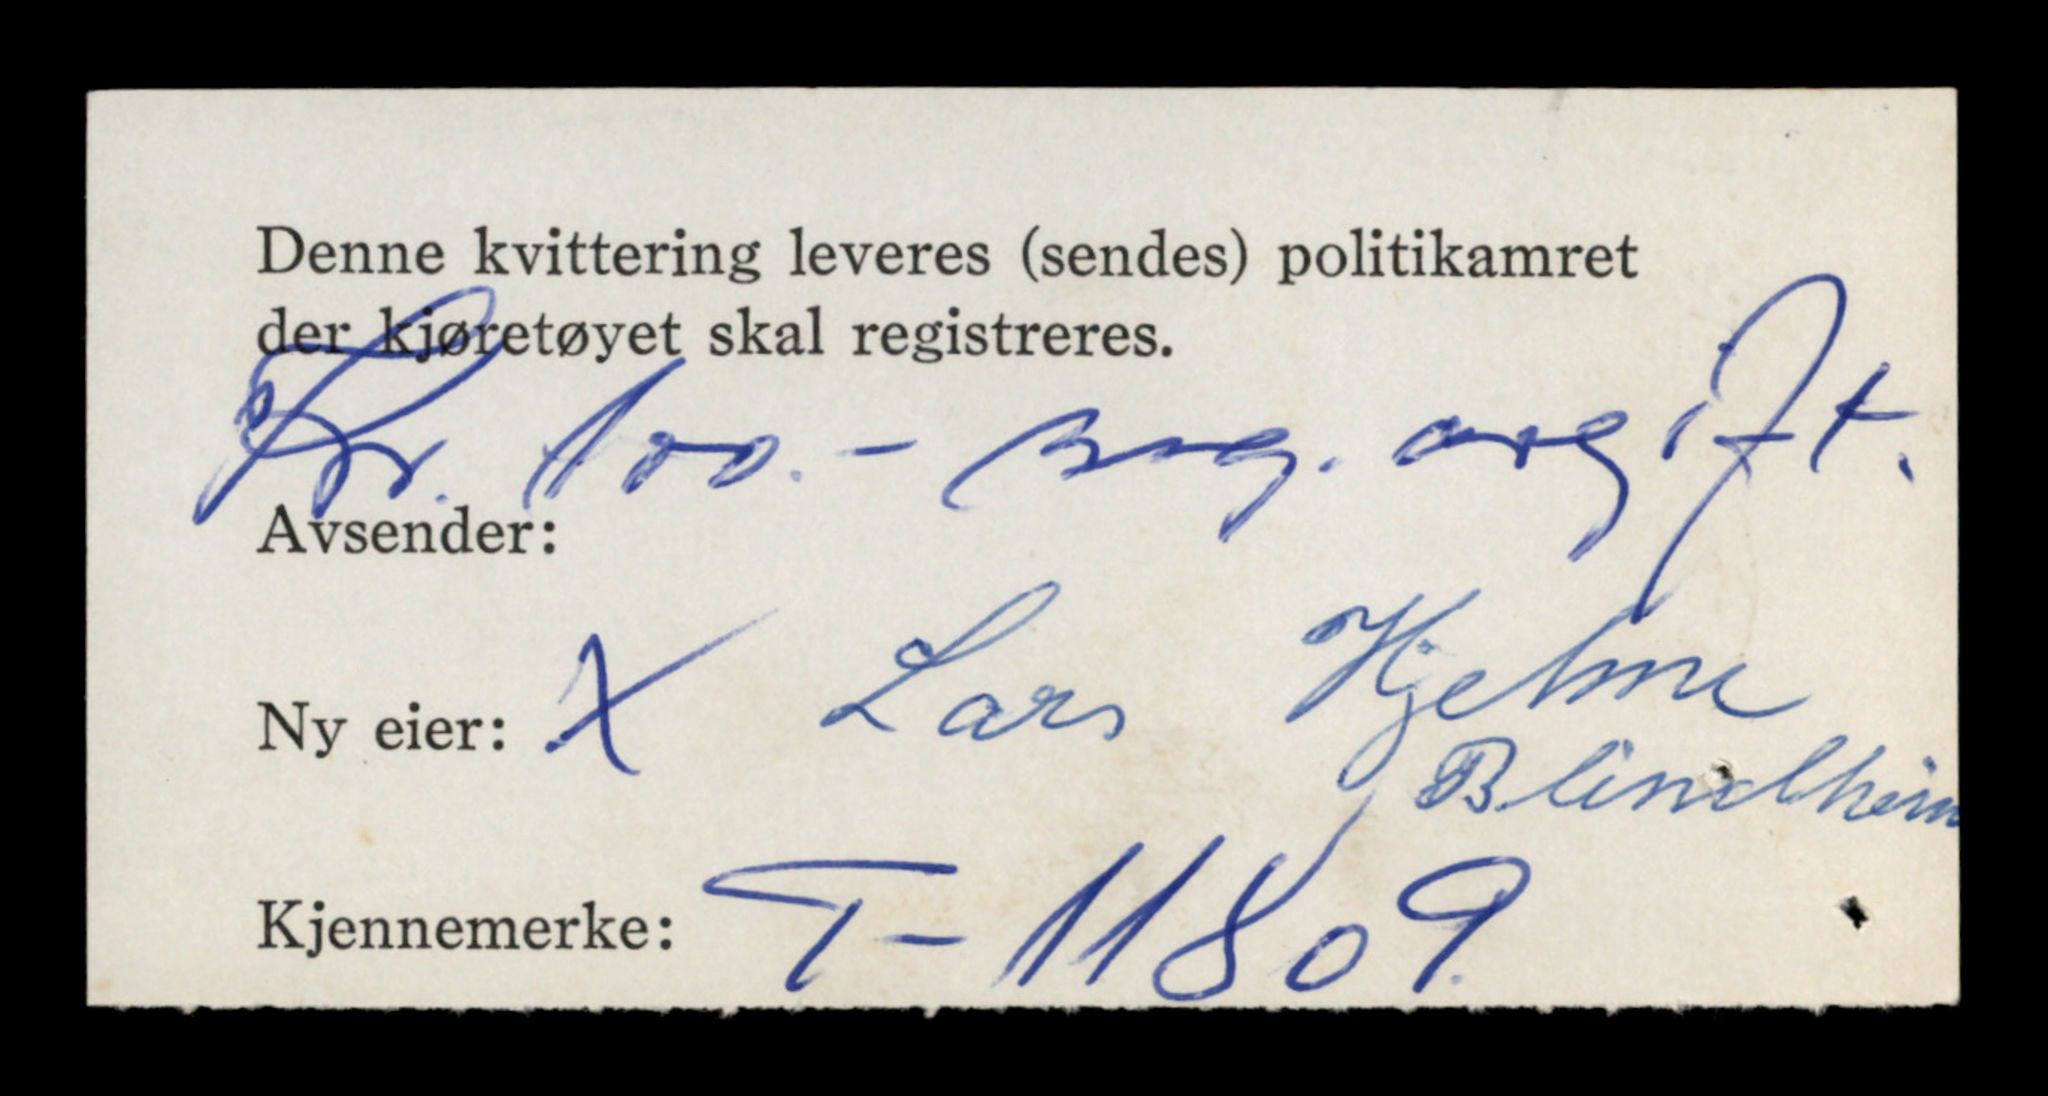 Denne kvittering leveres (sendes) politikamret
der kjøretøyet skal registreres.
Kr. 100.- reg. avgift.
Avsender:
Ny eier: X Lars Hjelme
Blindheim
Kjennemerke: T-11809